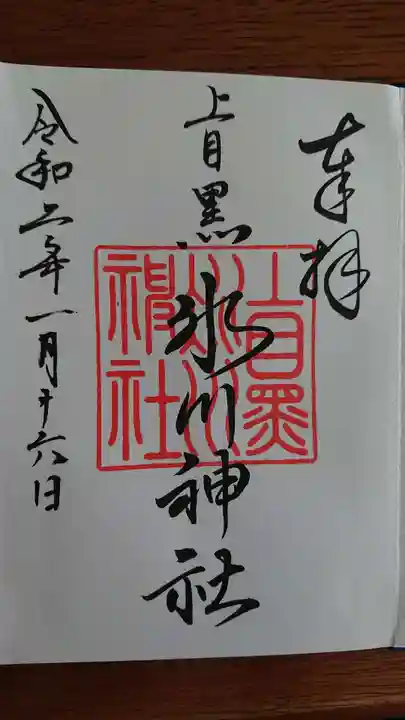 奉拝
上目黒
氷川神社
上目黒
氷川
神社
令和二年一月十六日